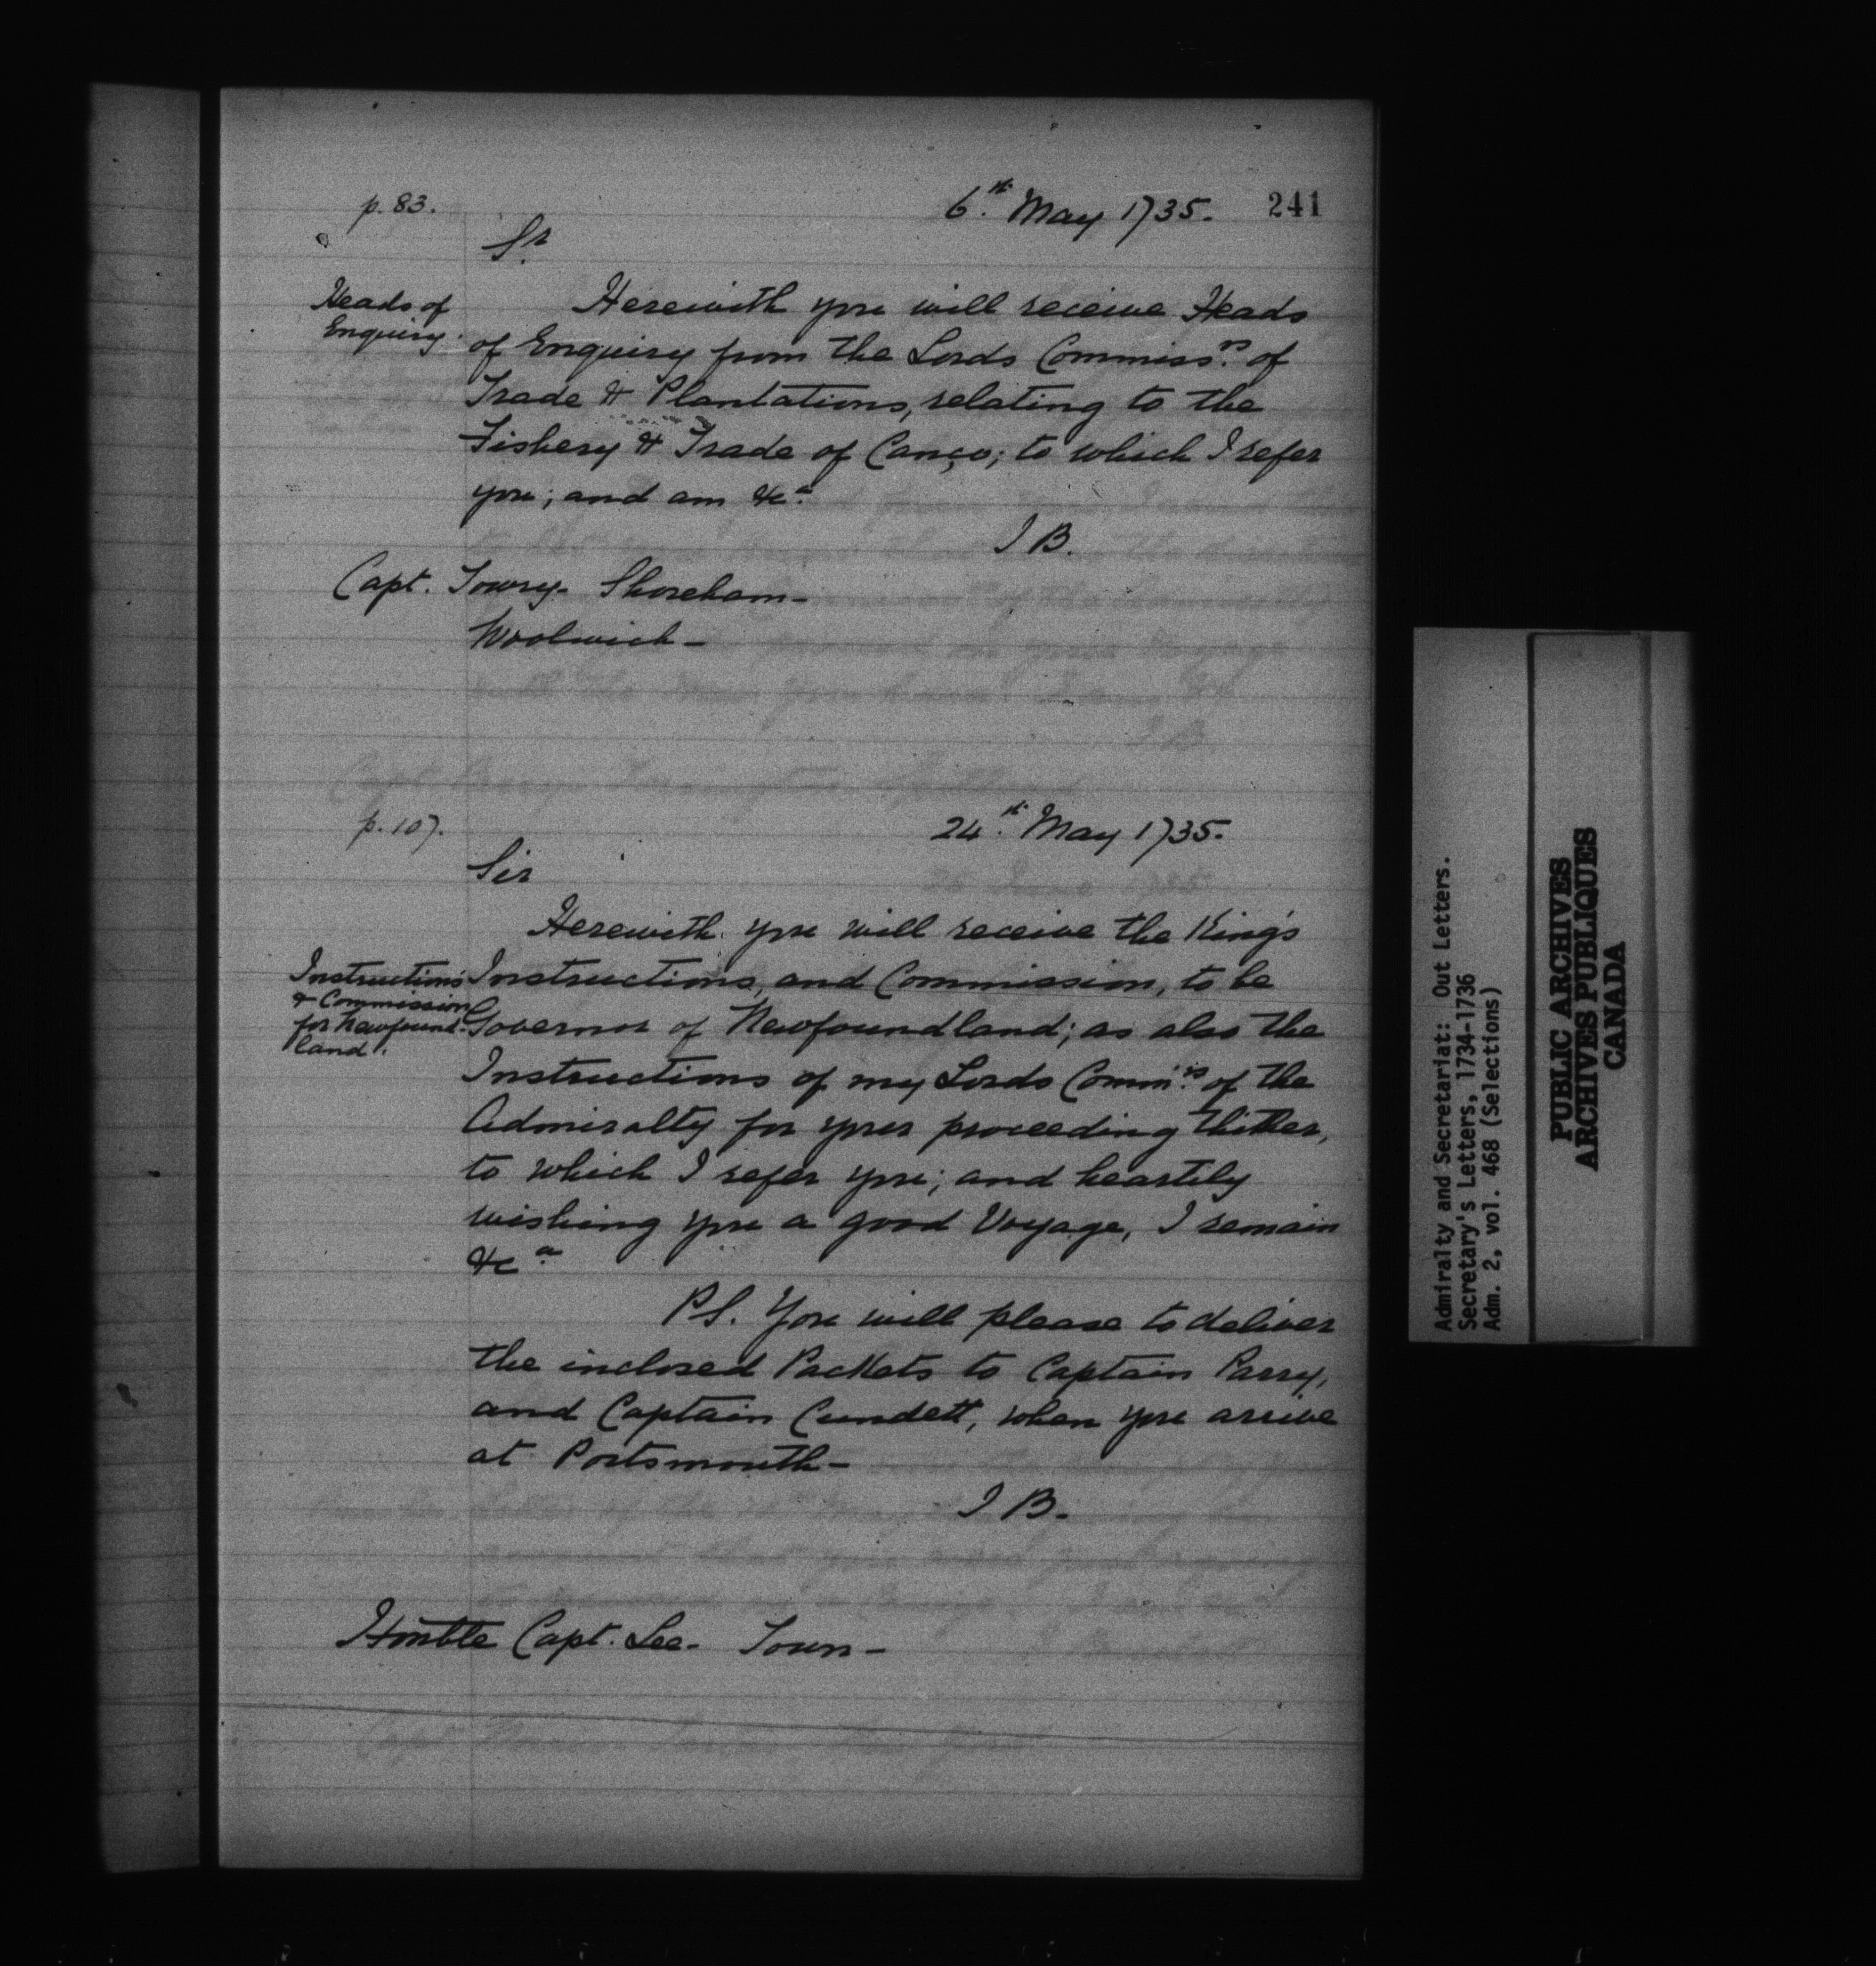 p. 83.
6th. May 1735. 241
Sr.
Heads of
Enquiry.
Herewith you will receive Heads
of Enquiry from the Lords Commissrs. of
Trade & Plantations, relating to the
Fishery & Trade of Canço; to which I refer
you; and am &ca.
J B.
Capt. Towry. Shoreham-
Woolwich-
p. 107.
24th. May 1735.
Sir
Herewith you will receive the King's
Instructions
& Commission
for Newfound-
land.
Instructions, and Commission, to be
Governor of Newfoundland; as also the
Instructions of my Lords Commrs. of the
Admiralty for your proceeding thither,
to which I refer you; and heartily
wishing you a good Voyage, I remain
&ca
P S. You will please to deliver
the inclosed Packets to Captain Parry,
and Captain Cundett, when you arrive
at Portsmouth-
J B.
Honble Capt. Lee- Town-
Admiralty and Secretariat: Out Letters.
Secretary's Letters, 1734-1736
Adm. 2, vol. 468 (Selections)
PUBLIC ARCHIVES
ARCHIVES PUBLIQUES
CANADA